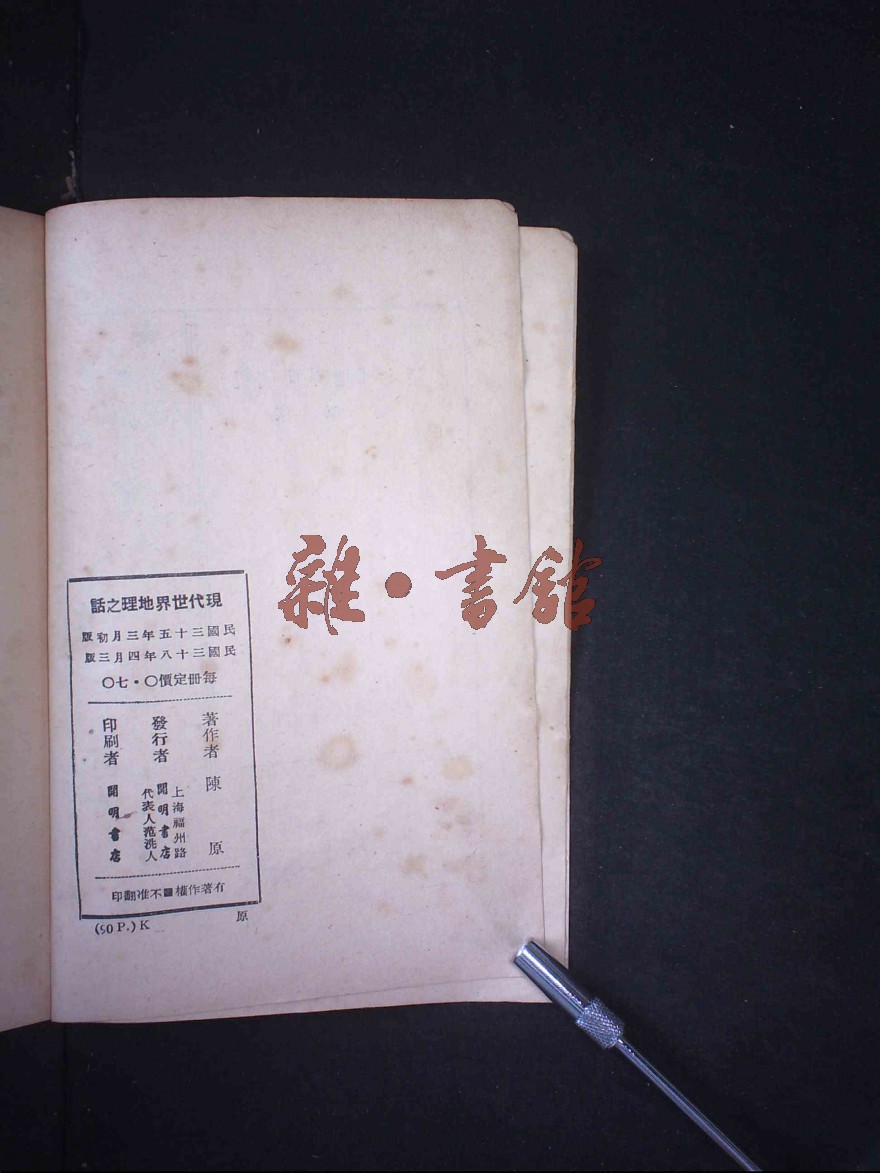 現代世界地理之話
民國三十五年三月初版
民國三十八年四月三版
每冊定價〇·七〇
著作者 陳原
發行者 上海福州路
開明書店
代表人范洗人
印刷者 開明書店
有著作權■不准翻印
原
(90 P.) K
雜·書館